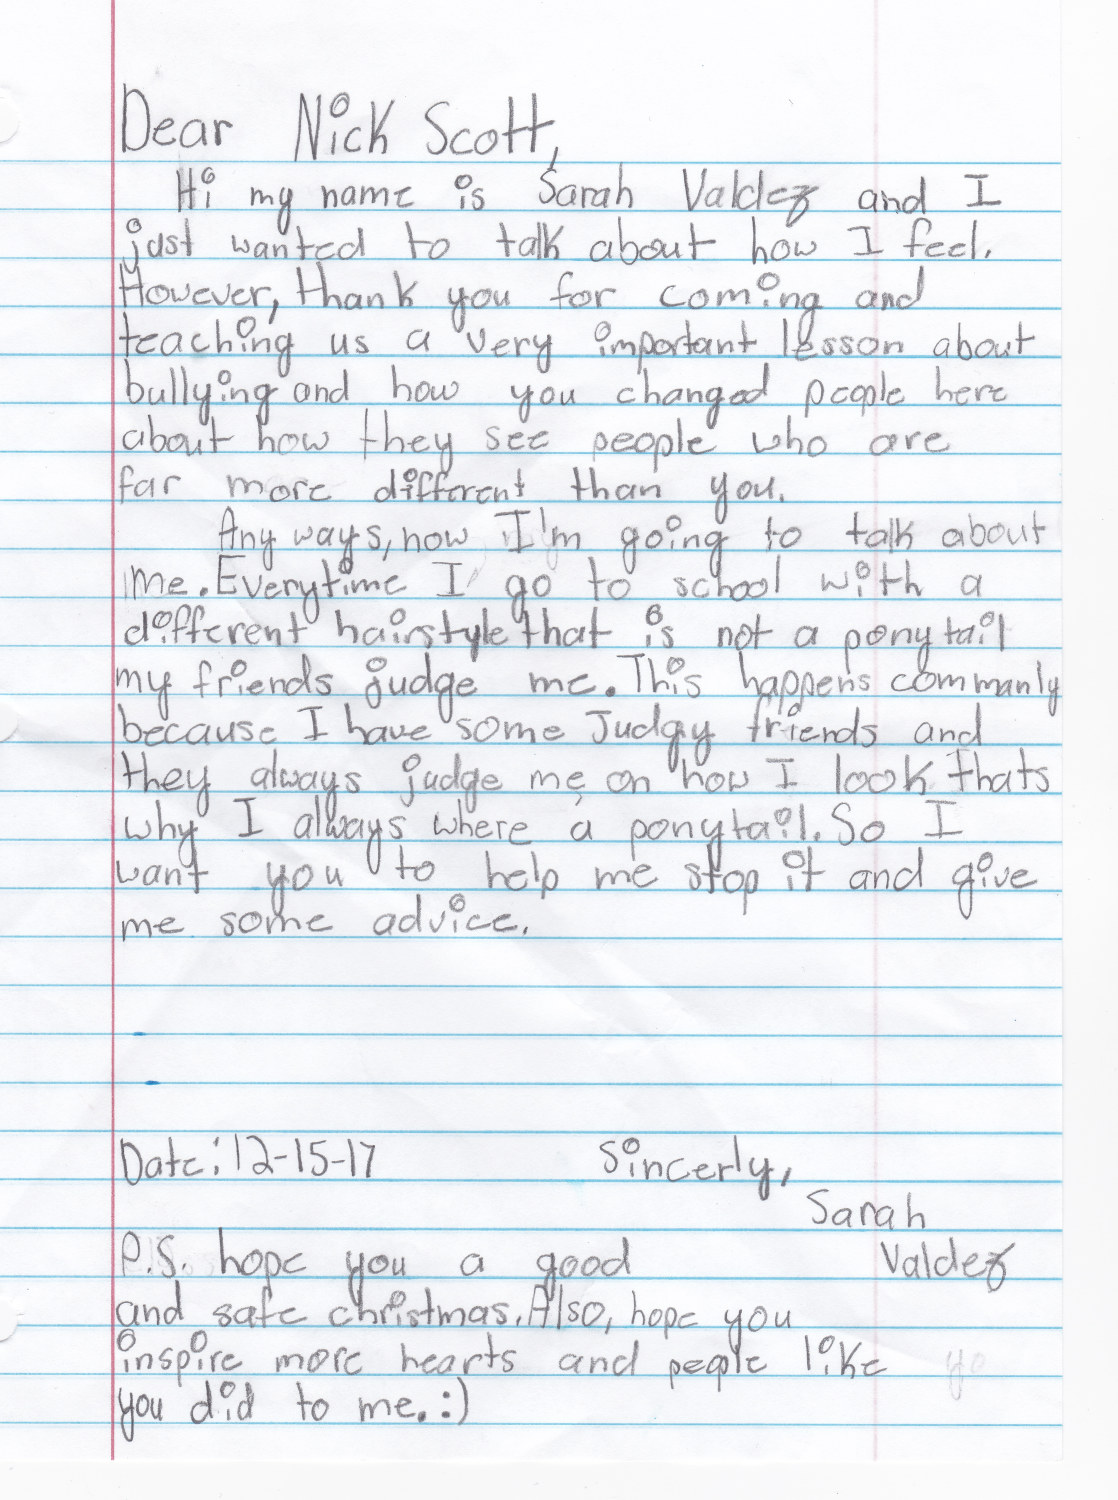 Dear Nick Scott,
Hi my name is Sarah Valdez and I
just wanted to talk about how I feel.
However, thank you for coming and
teaching us a very important lesson about
bullying and how you changed people here
about how they see people who are
far more different than you.
Any ways, now I'm going to talk about
me. Everytime I go to school with a
different hairstyle that is not a ponytail
my friends judge me. This happens commanly
because I have some Judgy friends and
they always judge me on how I look thats
why I always where a ponytail. So I
want you to help me stop it and give
me some advice.
Date: 12-15-17 Sincerly,
Sarah
Valdez
P.S. hope you a good
and safe christmas. Also, hope you
inspire more hearts and people like
you did to me. :)